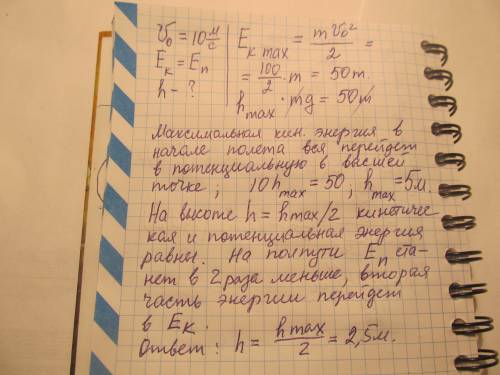 v₀ = 10 м/с
Eк = Eп
h - ?
Eк max = mv₀²/2 =
= 100/2 · m = 50m.
hmax · mg = 50m
Максимальная кин. энергия в
начале полета вся перейдет
в потенциальную в высшей
точке; 10hmax = 50; hmax = 5м.
На высоте h = hmax/2 кинетичес-
кая и потенциальная энергия
равны. На полпути Eп ста-
нет в 2 раза меньше, вторая
часть энергии перейдет
в Eк.
Ответ: h = hmax/2 = 2,5м.